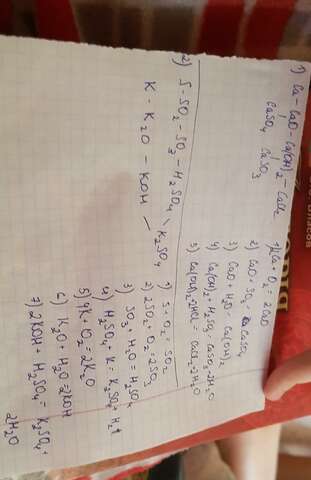 1) Ca - CaO - Ca(OH)2 - CaCl2
CaSO4 CaSO3
1) 2Ca + O2 = 2CaO
2) CaO + SO3 = CaSO4
3) CaO + H2O = Ca(OH)2
4) Ca(OH)2 + H2SO3 = CaSO3 + 2H2O
5) Ca(OH)2 + 2HCl = CaCl2 + 2H2O
2) S - SO2 - SO3 - H2SO4 \ K2SO4
K - K2O - KOH —
1) S + O2 = SO2
2) 2SO2 + O2 = 2SO3
3) SO3 + H2O = H2SO4
4) H2SO4 + K = K2SO4 + H2↑
5) 4K + O2 = 2K2O
6) K2O + H2O = 2KOH
7) 2KOH + H2SO4 = K2SO4 +
2H2O